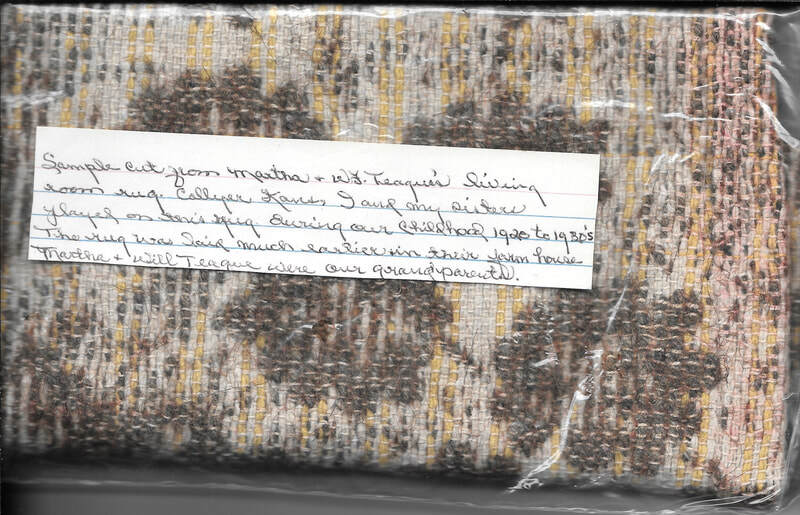 Sample cut from Martha + W.F. Teague's living
room rug Collyer Kans. I and my sisters
played on this rug during our childhood 1920 to 1930's
The rug was laid much earlier in their farm house
Martha + Will Teague were our grandparents.